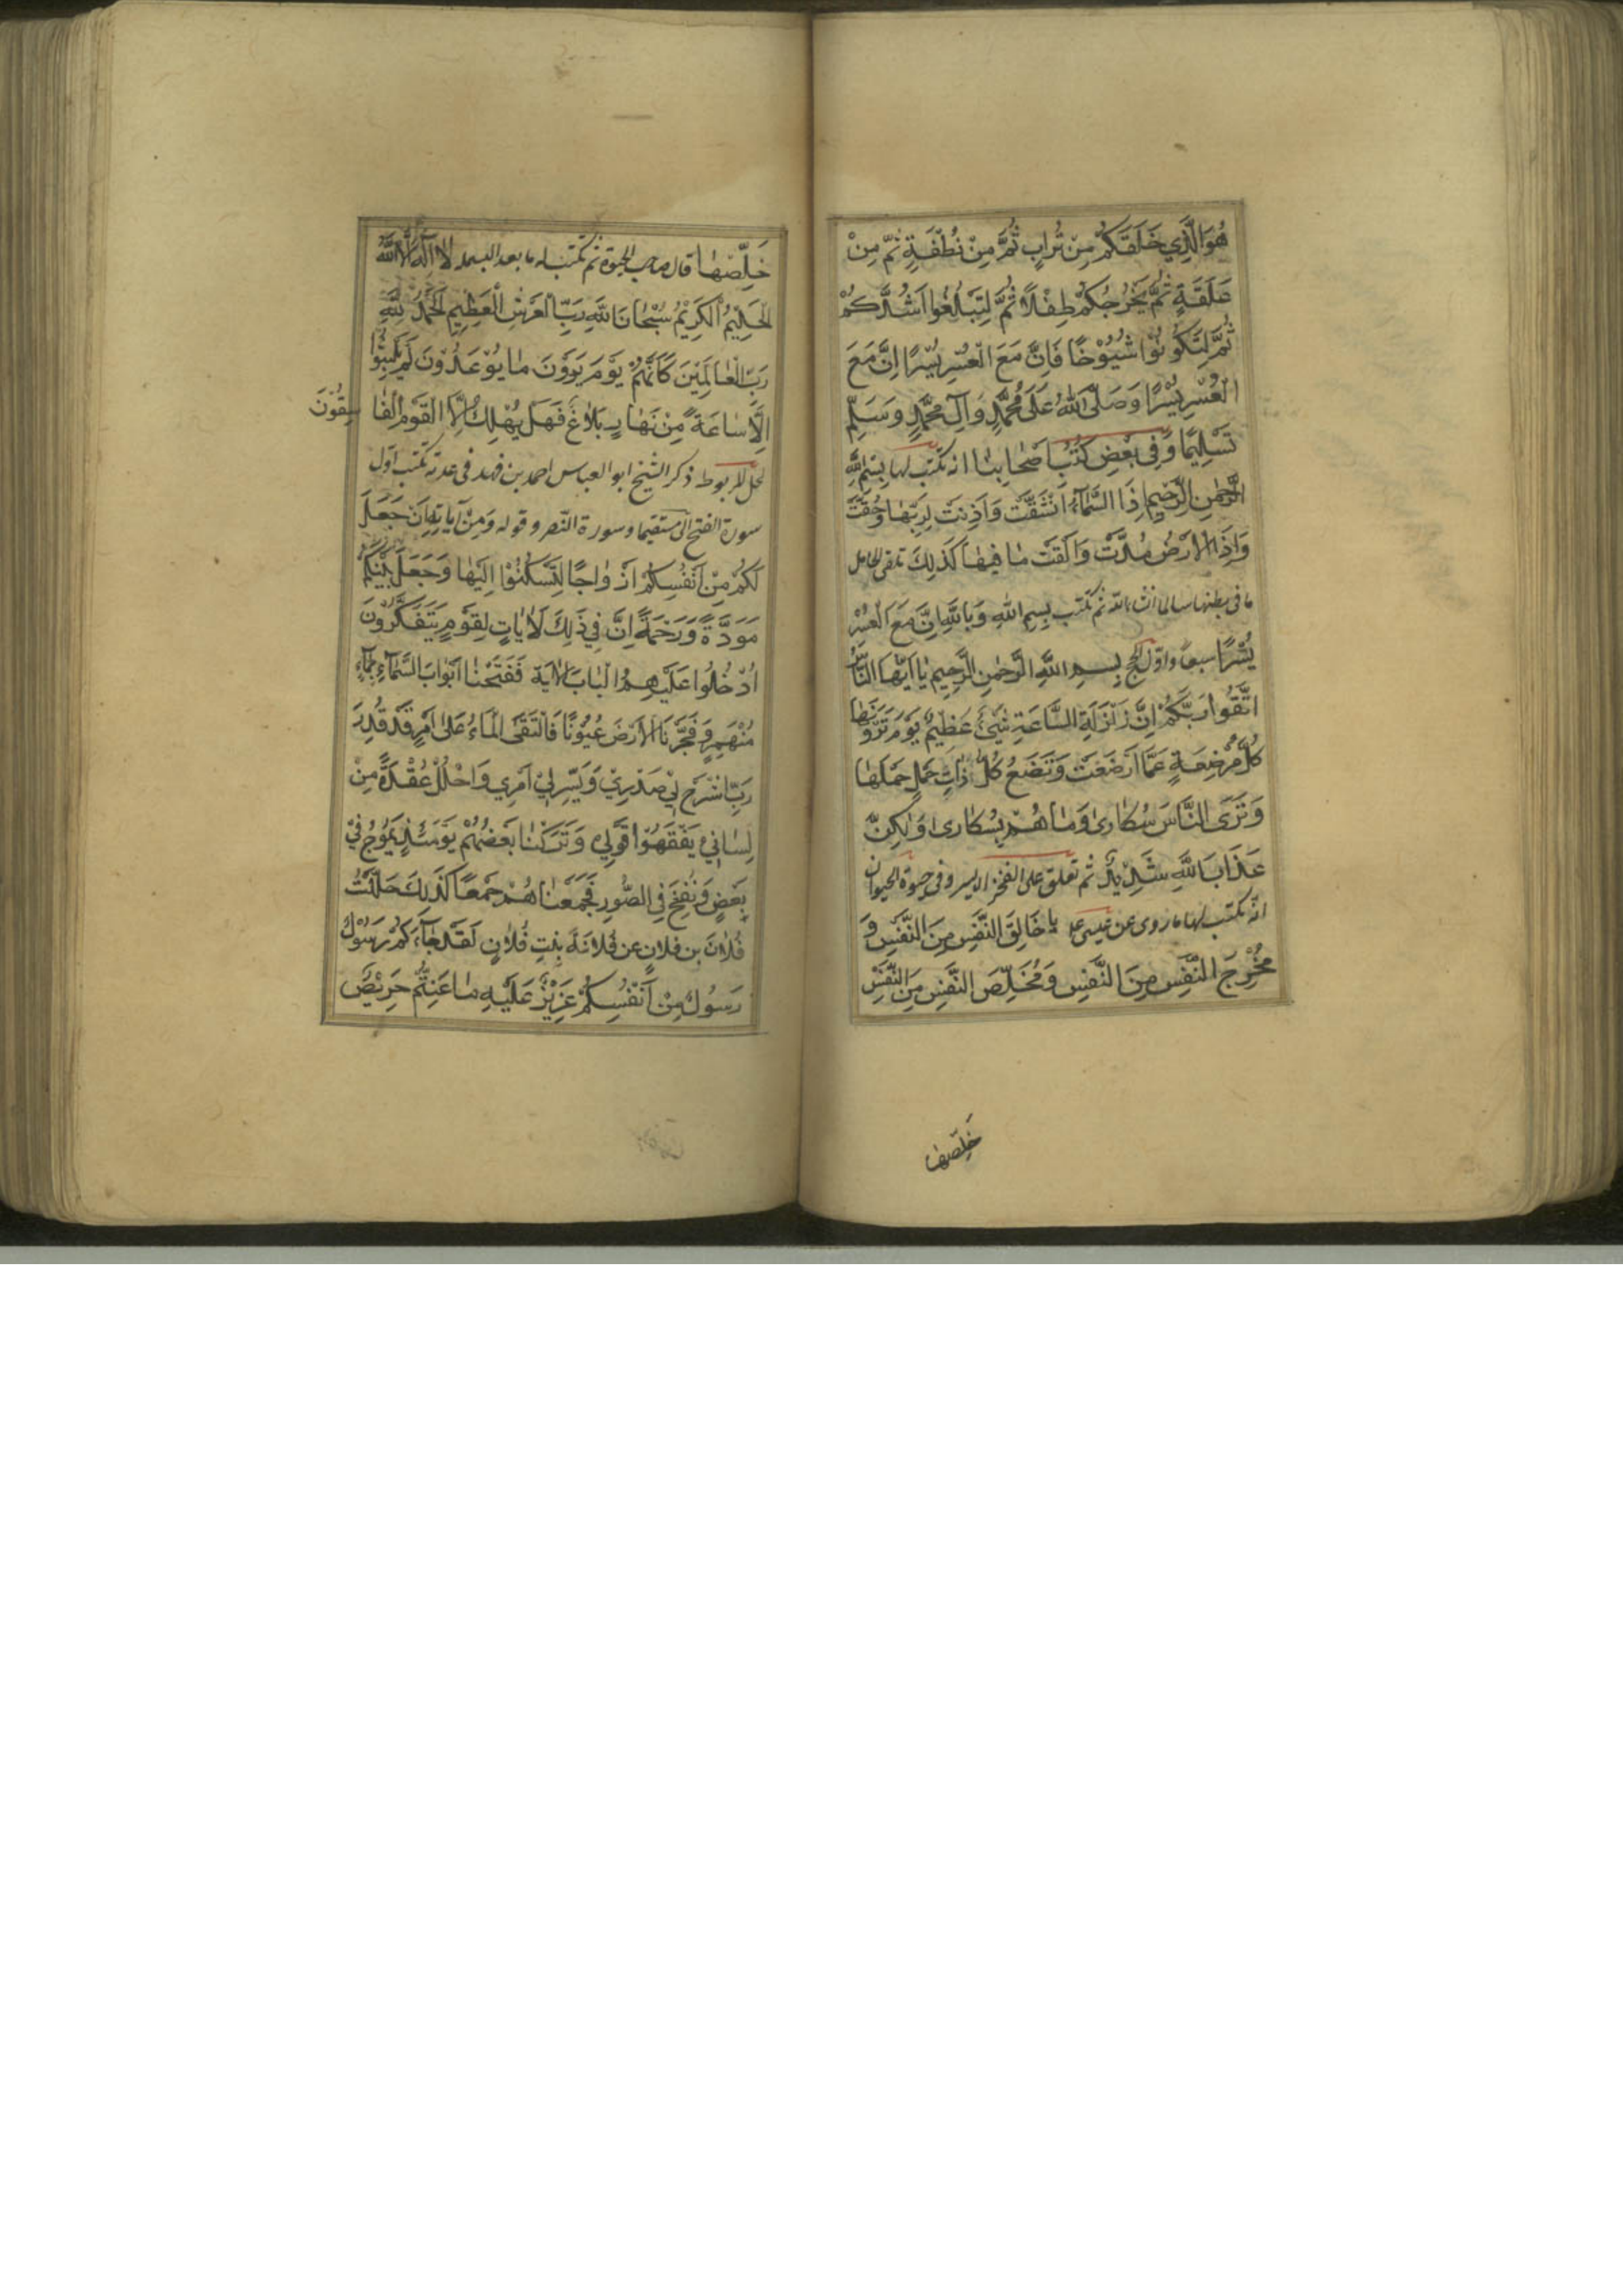 هُوَ الَّذِي خَلَقَكُمْ مِنْ تُرَابٍ ثُمَّ مِنْ نُطْفَةٍ ثُمَّ مِنْ
عَلَقَةٍ ثُمَّ يُخْرِجُكُمْ طِفْلًا ثُمَّ لِتَبْلُغُوا اَشُدَّكُمْ
ثُمَّ لِتَكُونُوْا شُيُوْخًا فَاِنَّ مَعَ الْعُسْرِ يُسْرًا اِنَّ مَعَ
الْعُسْرِ يُسْرًا وَصَلَّى اللهُ عَلَى مُحَمَّدٍ وَآلِ مُحَمَّدٍ وَسَلِّمْ
تَسْلِيْمًا وَفِي بَعْضِ كُتُبِ اَصْحَابِنَا انه تكتب لها بِسْمِ اللَّهِ
الرَّحْمٰنِ الرَّحِيمِ اِذَا السَّمَآءُ انْشَقَّتْ وَاَذِنَتْ لِرَبِّهَا وَحُقَّتْ
وَاِذَا الْاَرْضُ مُدَّتْ وَاَلْقَتْ مَا فِيهَا كَذَلِكَ تلقى الحامل
ما في بطنها سالما انشاءالله ثم تكتب بِسْمِ اللهِ وَبِاللَّهِ اِنَّ مَعَ الْعُسْرِ
يُسْرًا سبعا واوّل الحج بِسْمِ اللَّهِ الرَّحْمٰنِ الرَّحِيمِ يَا اَيُّهَا النَّاسُ
اتَّقُوا رَبَّكُمْ اِنَّ زَلْزَلَةَ السَّاعَةِ شَيْئٌ عَظِيْمٌ يَوْمَ تَرَوْنَهَا
كُلُّ مُرْضِعَةٍ عَمَّا اَرْضَعَتْ وَتَضَعُ كُلُّ ذَاتِ حَمْلٍ حَمْلَهَا
وَتَرَى النَّاسَ سُكَارىٰ وَمَا هُمْ بِسُكَارىٰ وَلٰكِنَّ
عَذَابَ اللَّهِ شَدِيْدٌ ثم تعلق على الفخذ الايسر وفي حيوة الحيوان
انّه تكتب لها ما روى عن عيسى ع يَا خَالِقَ النَّفْسِ مِنَ النَّفْسِ وَ
مُخْرِجَ النَّفْسِ مِنَ النَّفْسِ وَمُخَلِّصَ النَّفْسِ مِنَ النَّفْسِ
خَلِّصْهَا
خَلِّصْهَا قال صاحب الحيوة ثم تكتب له ما بعد البسملة لَا اِلٰهَ اِلَّا اللهُ
الْحَلِيْمُ الْكَرِيْمُ سُبْحَانَ اللَّهِ رَبِّ الْعَرْشِ الْعَظِيْمِ الْحَمْدُ لِلَّهِ
رَبِّ الْعَالَمِيْنَ كَاَنَّهُمْ يَوْمَ يَرَوْنَ مَا يُوْعَدُوْنَ لَمْ يَلْبَثُوْا
اِلَّا سَاعَةً مِنْ نَهَارٍ بَلَاغٌ فَهَلْ يُهْلَكُ اِلَّا الْقَوْمُ الْفَا سِقُوْنَ
لحل المربوط ذكر الشيخ ابو العباس احمد بن فهد في عدته تكتب اوّل
سورة الفتح الى مستقيما وسورة النصر وقوله وَمِنْ آيَاتِهِ اَنْ جَعَلَ
لَكُمْ مِنْ اَنْفُسِكُمْ اَزْوَاجًا لِتَسْكُنُوْا اِلَيْهَا وَجَعَلَ بَيْنَكُمْ
مَوَدَّةً وَرَحْمَةً اِنَّ فِي ذَلِكَ لَاٰيَاتٍ لِقَوْمٍ يَتَفَكَّرُوْنَ
اُدْخُلُوا عَلَيْهِمُ الْبَابَ الْاٰيَة فَفَتَحْنَا اَبْوَابَ السَّمَآءِ بِمَآءٍ
مُنْهَمِرٍ وَفَجَّرْنَا الْاَرْضَ عُيُوْنًا فَالْتَقَى الْمَاءُ عَلىٰ اَمْرٍ قَدْ قُدِرَ
رَبِّ اشْرَحْ لِيْ صَدْرِيْ وَيَسِّرْ لِيْ اَمْرِي وَاحْلُلْ عُقْدَةً مِنْ
لِسَانِيْ يَفْقَهُوْا قَوْلِي وَتَرَكْنَا بَعْضَهُمْ يَوْمَئِذٍ يَمُوْجُ فِيْ
بَعْضٍ وَنُفِخَ فِي الصُّوْرِ فَجَمَعْنَاهُمْ جَمْعًا كَذَلِكَ حَلَلْتُ
فُلَانَ بن فلانٍ عن فُلَانَة بِنْتِ فُلَانٍ لَقَدْ جَآءَكُمْ رَسُوْلٌ
رَسُوْلٌ مِنْ اَنْفُسِكُمْ عَزِيْزٌ عَلَيْهِ مَا عَنِتُّمْ حَرِيْصٌ